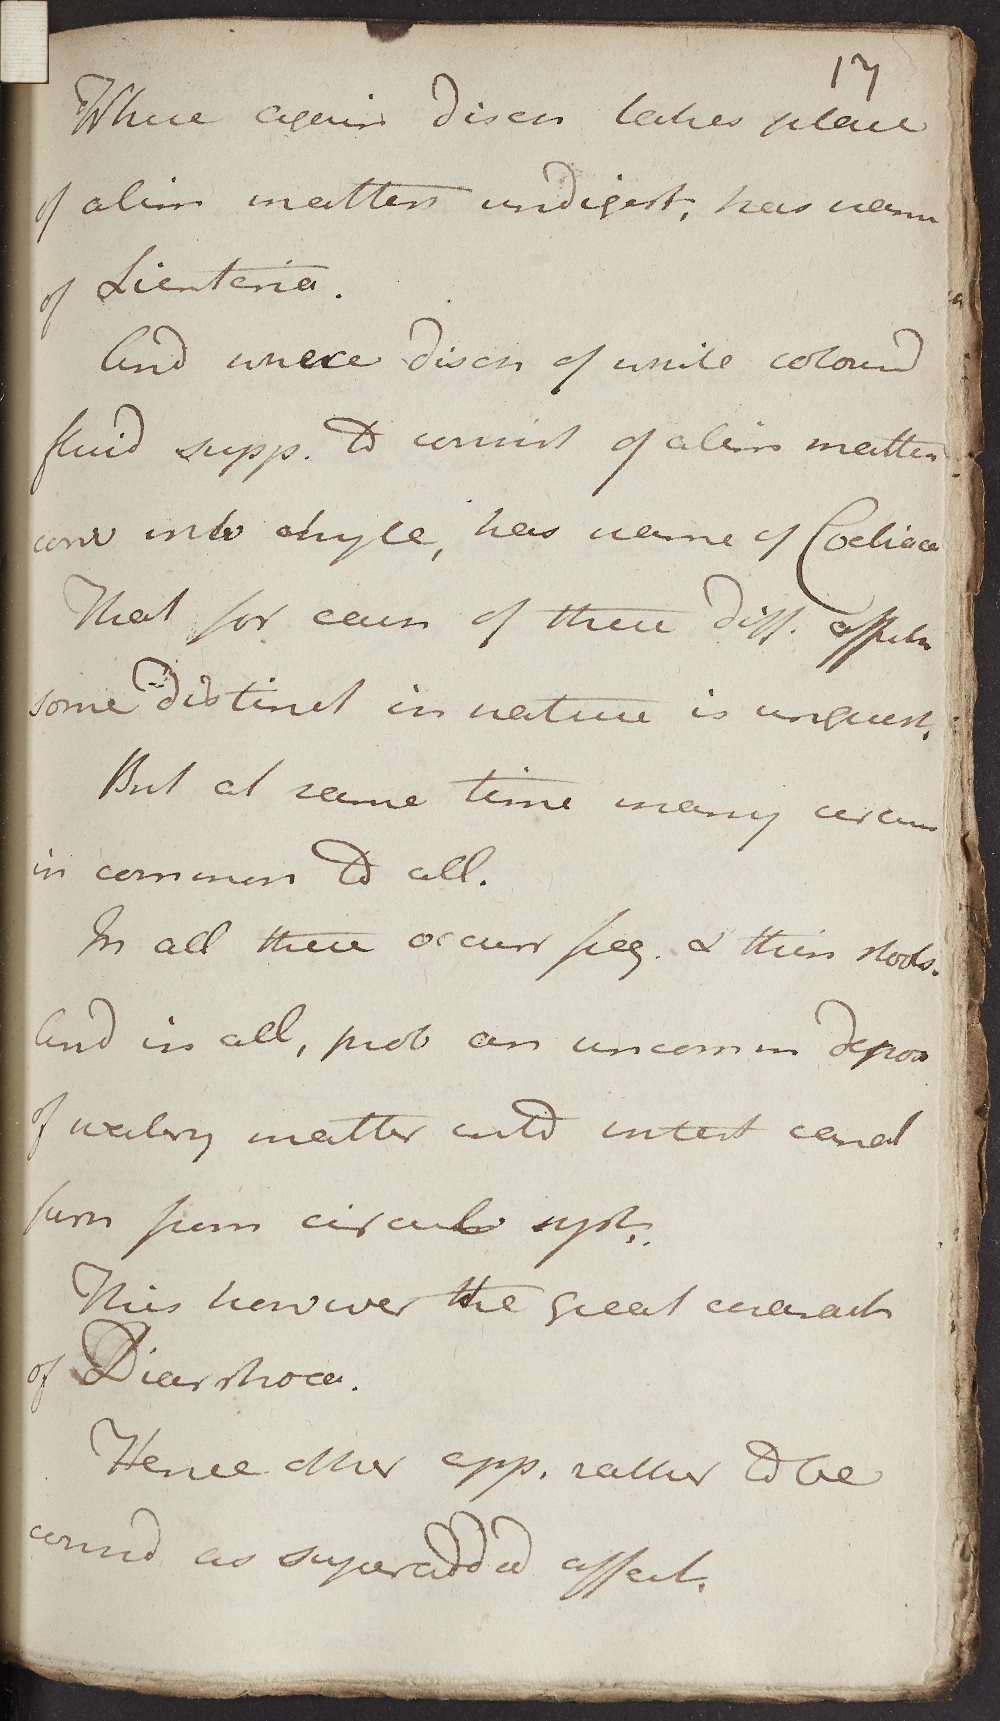 17
Where again disch takes place
of alim matters undigest, has name
of Lienteria.
And where disch of white colourd
fluid supp. to consist of alim matter
conv into chyle, has name of Coeliaca
That for caus of these diff. affects
some distinct in nature is unquest.
But at same time many circum
in common to all.
In all there occurr freq. & thin stools.
And in all, prob an uncomm depos
of watery matter into intest canal
from circul syst.
This however the great charact
of Diarrhoea.
Hence other app. rather to be
considd as superadded affect.